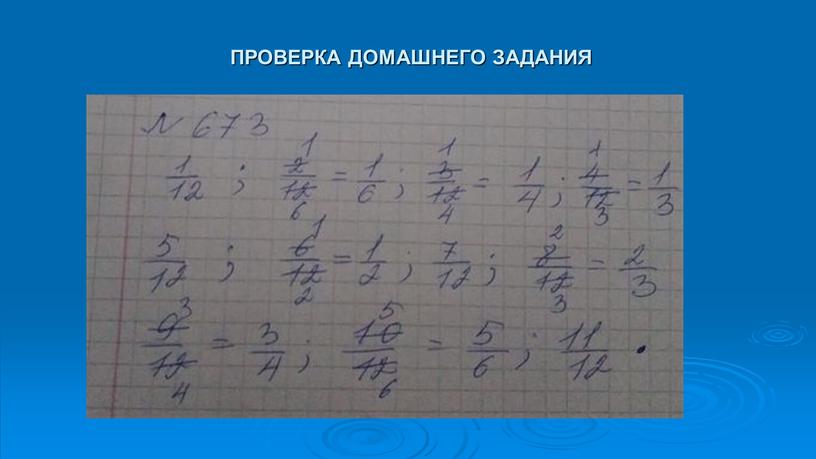 ПРОВЕРКА ДОМАШНЕГО ЗАДАНИЯ
№ 673
1/12 ; 2/12 = 1/6 ; 3/12 = 1/4 ; 4/12 = 1/3
5/12 ; 6/12 = 1/2 ; 7/12 ; 8/12 = 2/3
9/12 = 3/4 ; 10/12 = 5/6 ; 11/12 .